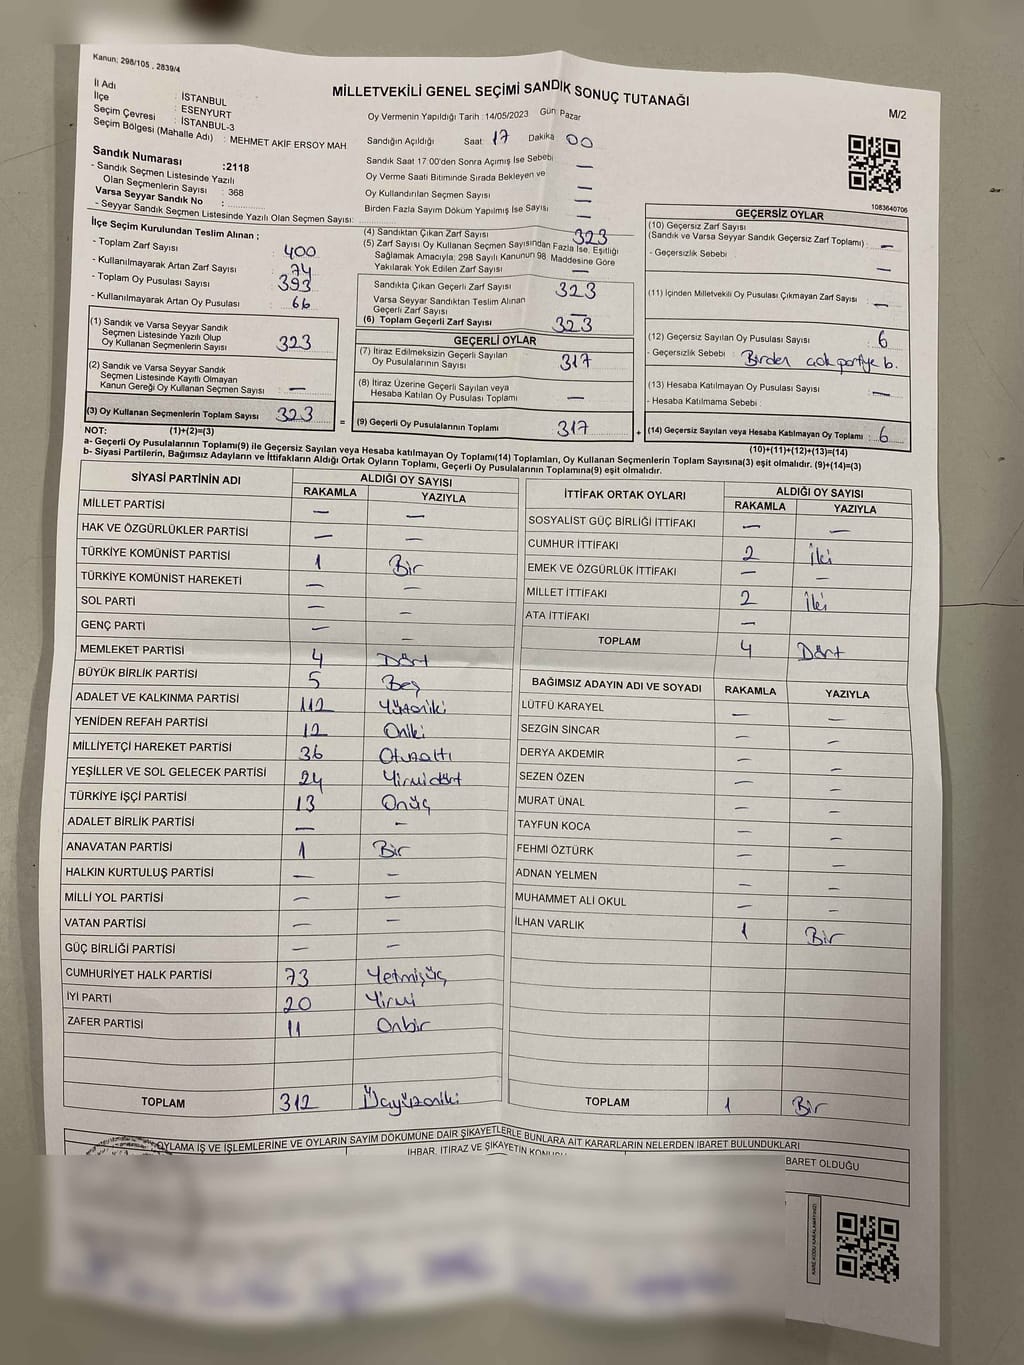 Kanun: 298/105 , 2839/4
MİLLETVEKİLİ GENEL SEÇİMİ SANDIK SONUÇ TUTANAĞI
M/2
İl Adı : İSTANBUL
İlçe : ESENYURT
Seçim Çevresi : İSTANBUL-3
Seçim Bölgesi (Mahalle Adı) : MEHMET AKİF ERSOY MAH
Sandık Numarası :2118
- Sandık Seçmen Listesinde Yazılı
Olan Seçmenlerin Sayısı : 368
Varsa Seyyar Sandık No :
- Seyyar Sandık Seçmen Listesinde Yazılı Olan Seçmen Sayısı:
Oy Vermenin Yapıldığı Tarih :14/05/2023 Gün Pazar
Sandığın Açıldığı Saat: 17 Dakika 00
Sandık Saat 17 00'den Sonra Açımış İse Sebebi —
Oy Verme Saati Bitiminde Sırada Bekleyen ve
Oy Kullandırılan Seçmen Sayısı —
Birden Fazla Sayım Döküm Yapılmış İse Sayısı —
1083640706
İlçe Seçim Kurulundan Teslim Alınan ;
- Toplam Zarf Sayısı : 400
- Kullanılmayarak Artan Zarf Sayısı : 74
- Toplam Oy Pusulası Sayısı : 393
- Kullanılmayarak Artan Oy Pusulası : 66
(1) Sandık ve Varsa Seyyar Sandık
Seçmen Listesinde Yazılı Olup
Oy Kullanan Seçmenlerin Sayısı : 323
(2) Sandık ve Varsa Seyyar Sandık
Seçmen Listesinde Kayıtlı Olmayan
Kanun Gereği Oy Kullanan Seçmen Sayısı : —
(3) Oy Kullanan Seçmenlerin Toplam Sayısı : 323
(4) Sandıktan Çıkan Zarf Sayısı 323
(5) Zarf Sayısı Oy Kullanan Seçmen Sayısından Fazla İse, Eşitliği
Sağlamak Amacıyla; 298 Sayılı Kanunun 98. Maddesine Göre
Yakılarak Yok Edilen Zarf Sayısı —
Sandıkta Çıkan Geçerli Zarf Sayısı 323
Varsa Seyyar Sandıktan Teslim Alınan
Geçerli Zarf Sayısı —
(6) Toplam Geçerli Zarf Sayısı 323
GEÇERLİ OYLAR
(7) İtiraz Edilmeksizin Geçerli Sayılan
Oy Pusulalarının Sayısı 317
(8) İtiraz Üzerine Geçerli Sayılan veya
Hesaba Katılan Oy Pusulası Toplamı —
= (9) Geçerli Oy Pusulalarının Toplamı 317
GEÇERSİZ OYLAR
(10) Geçersiz Zarf Sayısı
(Sandık ve Varsa Seyyar Sandık Geçersiz Zarf Toplamı) : —
- Geçersizlik Sebebi : —
(11) İçinden Milletvekili Oy Pusulası Çıkmayan Zarf Sayısı : —
(12) Geçersiz Sayılan Oy Pusulası Sayısı : 6
- Geçersizlik Sebebi : Birden çok partiye b.
(13) Hesaba Katılmayan Oy Pusulası Sayısı : —
- Hesaba Katılmama Sebebi :
+ (14) Geçersiz Sayılan veya Hesaba Katılmayan Oy Toplamı : 6
NOT: (1)+(2)=(3)
(10)+(11)+(12)+(13)=(14)
a- Geçerli Oy Pusulalarının Toplamı(9) ile Geçersiz Sayılan veya Hesaba katılmayan Oy Toplamı(14) Toplamları, Oy Kullanan Seçmenlerin Toplam Sayısına(3) eşit olmalıdır. (9)+(14)=(3)
b- Siyasi Partilerin, Bağımsız Adayların ve İttifakların Aldığı Ortak Oyların Toplamı, Geçerli Oy Pusulalarının Toplamına(9) eşit olmalıdır.
SİYASİ PARTİNİN ADI ALDIĞI OY SAYISI
RAKAMLA YAZIYLA
MİLLET PARTİSİ — —
HAK VE ÖZGÜRLÜKLER PARTİSİ — —
TÜRKİYE KOMÜNİST PARTİSİ 1 Bir
TÜRKİYE KOMÜNİST HAREKETİ — —
SOL PARTİ — —
GENÇ PARTİ — —
MEMLEKET PARTİSİ 4 Dört
BÜYÜK BİRLİK PARTİSİ 5 Beş
ADALET VE KALKINMA PARTİSİ 112 Yüzoniki
YENİDEN REFAH PARTİSİ 12 Oniki
MİLLİYETÇİ HAREKET PARTİSİ 36 Otuzaltı
YEŞİLLER VE SOL GELECEK PARTİSİ 24 Yirmidört
TÜRKİYE İŞÇİ PARTİSİ 13 Onüç
ADALET BİRLİK PARTİSİ — —
ANAVATAN PARTİSİ 1 Bir
HALKIN KURTULUŞ PARTİSİ — —
MİLLİ YOL PARTİSİ — —
VATAN PARTİSİ — —
GÜÇ BİRLİĞİ PARTİSİ — —
CUMHURİYET HALK PARTİSİ 73 Yetmişüç
İYİ PARTİ 20 Yirmi
ZAFER PARTİSİ 11 Onbir
TOPLAM 312 Üçyüzoniki
İTTİFAK ORTAK OYLARI ALDIĞI OY SAYISI
RAKAMLA YAZIYLA
SOSYALİST GÜÇ BİRLİĞİ İTTİFAKI — —
CUMHUR İTTİFAKI 2 İki
EMEK VE ÖZGÜRLÜK İTTİFAKI — —
MİLLET İTTİFAKI 2 İki
ATA İTTİFAKI —
TOPLAM 4 Dört
BAĞIMSIZ ADAYIN ADI VE SOYADI RAKAMLA YAZIYLA
LÜTFÜ KARAYEL — —
SEZGİN SİNCAR — —
DERYA AKDEMİR — —
SEZEN ÖZEN — —
MURAT ÜNAL — —
TAYFUN KOCA — —
FEHMİ ÖZTÜRK — —
ADNAN YELMEN — —
MUHAMMET ALİ OKUL — —
İLHAN VARLIK 1 Bir
TOPLAM 1 Bir
OYLAMA İŞ VE İŞLEMLERİNE VE OYLARIN SAYIM DÖKÜMÜNE DAİR ŞİKAYETLERLE BUNLARA AİT KARARLARIN NELERDEN İBARET BULUNDUKLARI
İHBAR, İTİRAZ VE ŞİKAYETİN KONUSU
BARET OLDUĞU